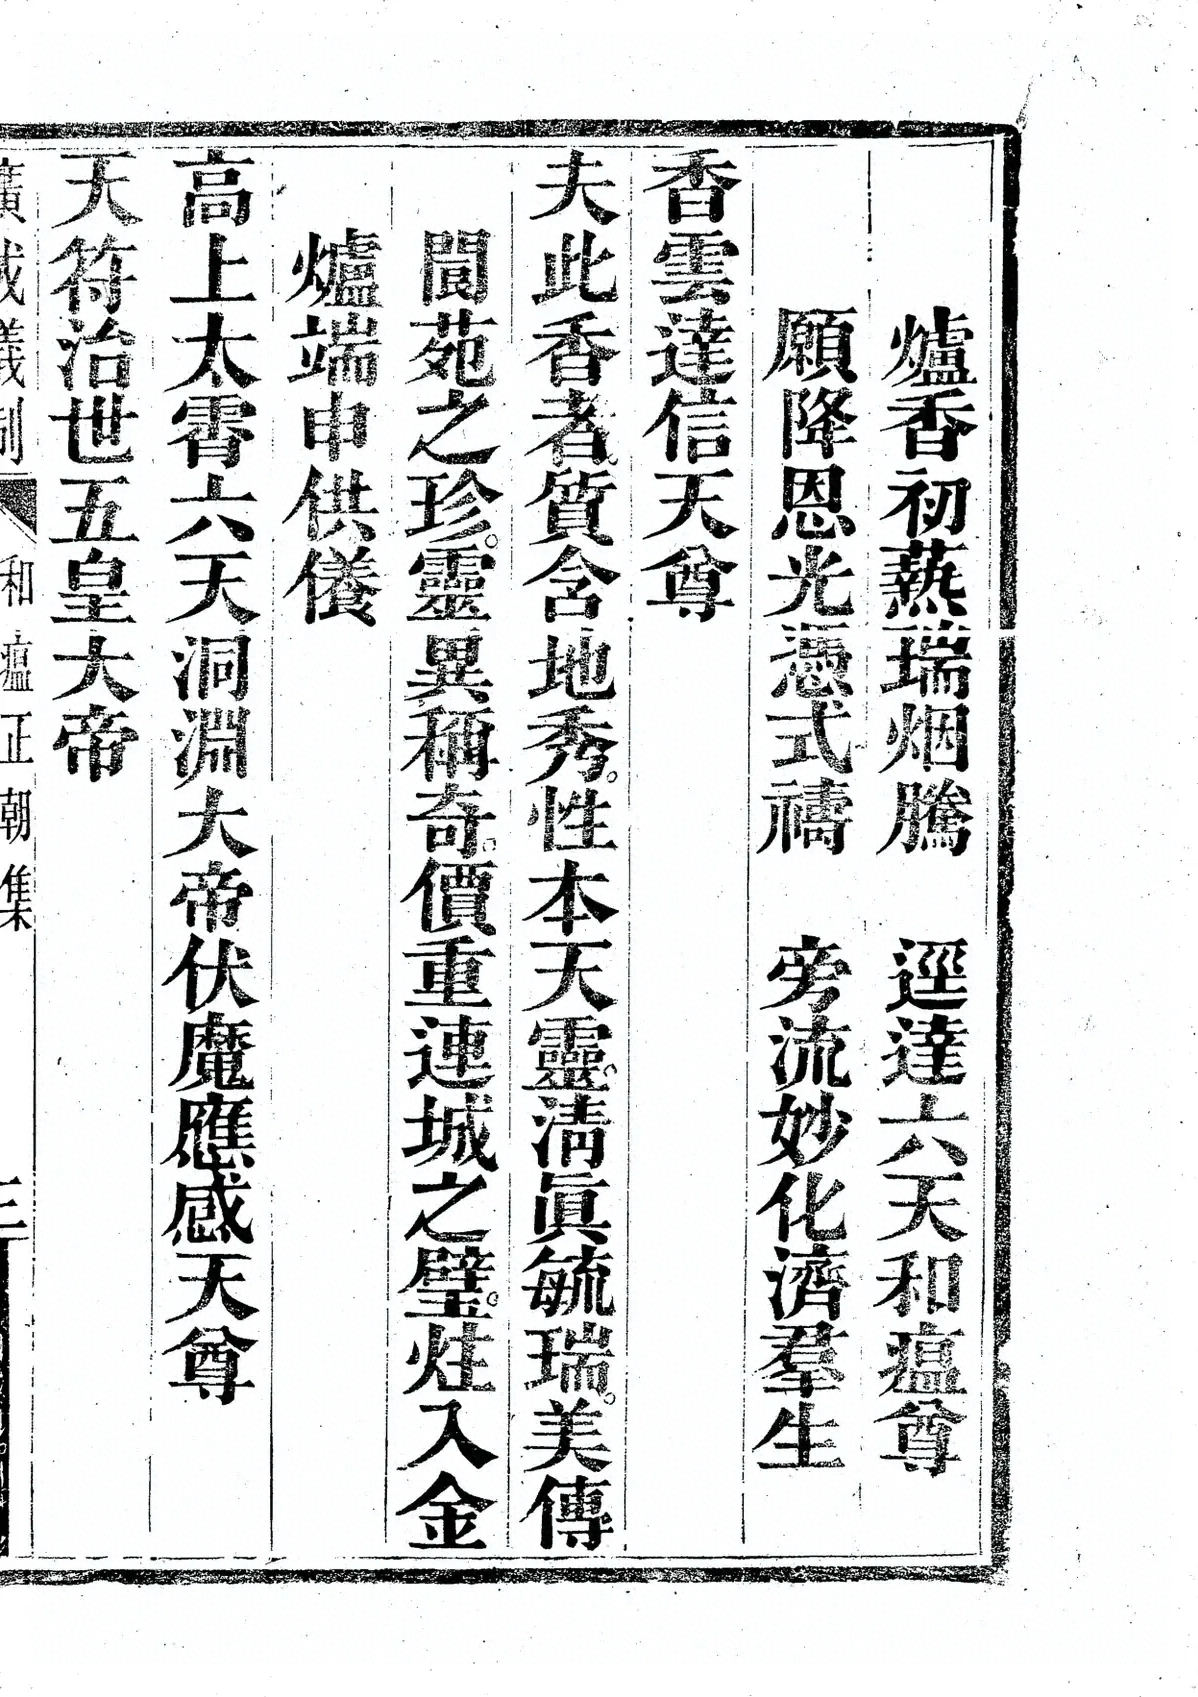 爐香初爇瑞烟騰　逕達六天和瘟尊
願降恩光憑式禱　旁流妙化濟羣生
香雲達信天尊
夫此香者。質含地秀。性本天靈。淸眞毓瑞。美傳
閬苑之珍。靈異稱奇。價重連城之璧。炷入金
爐端申供儀
高上太霄六天洞淵大帝伏魔應感天尊
天符治世五皇大帝
廣成儀制　和瘟正朝集　三